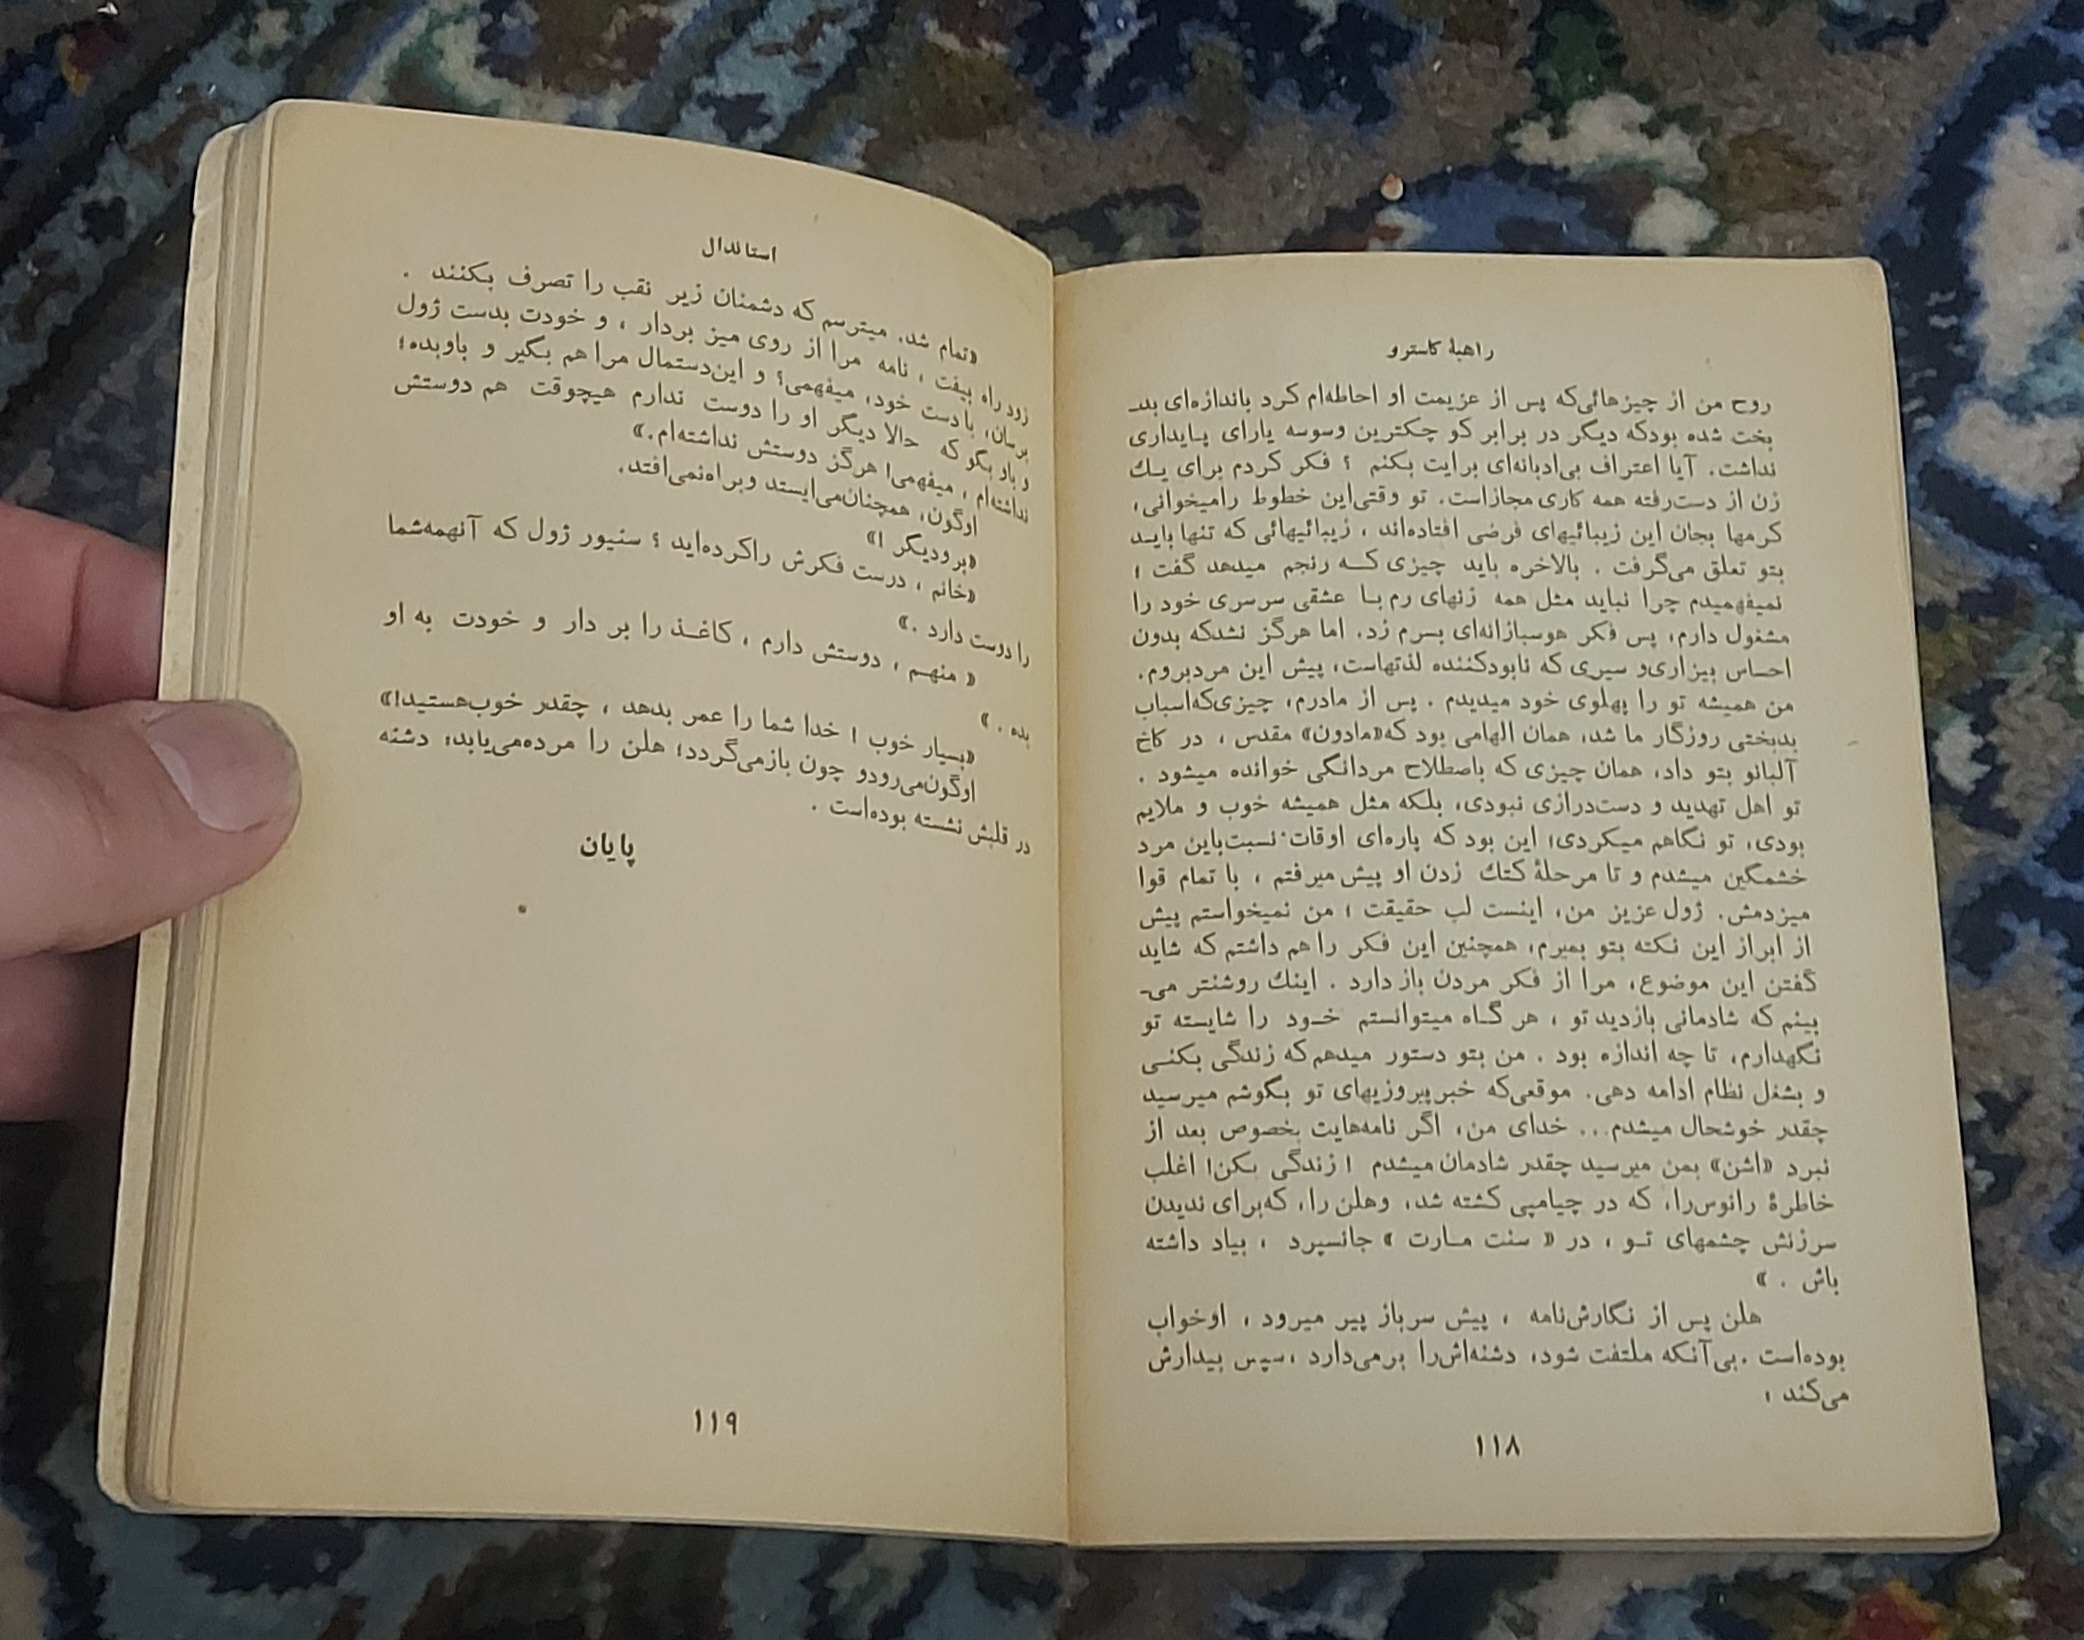 راهبهٔ کاسترو
روح من از چیزهائی‌که پس از عزیمت او احاطه‌ام کرد باندازه‌ای بد-
بخت شده بودکه دیگر در برابر کو چکترین وسوسه یارای پایداری
نداشت. آیا اعتراف بی‌ادبانه‌ای برایت بکنم ؟ فکر کردم برای یک
زن از دست‌رفته همه کاری مجازاست. تو وقتی‌این خطوط رامیخوانی،
کرمها بجان این زیبائیهای فرضی افتاده‌اند ، زیبائیهائی که تنها باید
بتو تعلق می‌گرفت . بالاخره باید چیزی که رنجم میدهد گفت ؛
نمیفهمیدم چرا نباید مثل همه زنهای رم با عشقی سرسری خود را
مشغول دارم، پس فکر هوسبازانه‌ای بسرم زد. اما هرگز نشدکه بدون
احساس بیزاری‌و سیری که نابودکننده لذتهاست، پیش این مردبروم.
من همیشه تو را پهلوی خود میدیدم . پس از مادرم، چیزی‌که‌اسباب
بدبختی روزگار ما شد، همان الهامی بود که«مادون» مقدس ، در کاخ
آلبانو بتو داد، همان چیزی که باصطلاح مردانگی خوانده میشود .
تو اهل تهدید و دست‌درازی نبودی، بلکه مثل همیشه خوب و ملایم
بودی، تو نگاهم میکردی؛ این بود که پاره‌ای اوقات نسبت‌باین مرد
خشمگین میشدم و تا مرحلهٔ کتك زدن او پیش میرفتم ، با تمام قوا
میزدمش. ژول عزیز من، اینست لب حقیقت ؛ من نمیخواستم پیش
از ابراز این نکته بتو بمیرم، همچنین این فکر را هم داشتم که شاید
گفتن این موضوع، مرا از فکر مردن باز دارد . اینك روشنتر می-
بینم که شادمانی بازدید تو ، هر گاه میتوانستم خود را شایسته تو
نگهدارم، تا چه اندازه بود . من بتو دستور میدهم‌که زندگی بکنی
و بشغل نظام ادامه دهی. موقعی‌که خبرپیروزیهای تو بگوشم میرسید
چقدر خوشحال میشدم... خدای من، اگر نامه‌هایت بخصوص بعد از
نبرد «اشن» بمن میرسید چقدر شادمان میشدم ! زندگی بکن! اغلب
خاطرهٔ رانوس‌را، که در چیامپی کشته شد، وهلن را، که‌برای ندیدن
سرزنش چشمهای تو ، در « سنت مارت » جانسپرد ، بیاد داشته
باش . »
هلن پس از نگارش‌نامه ، پیش سرباز پیر میرود ، اوخواب
بوده‌است .بی‌آنکه ملتفت شود، دشنه‌اش‌را برمی‌دارد ،سپس بیدارش
می‌کند ،
۱۱۸
استاندال
«تمام شد. میترسم که دشمنان زیر نقب را تصرف بکنند .
زود راه بیفت ، نامه مرا از روی میز بردار ، و خودت بدست ژول
برسان، بادست خود، میفهمی؟ و این‌دستمال مرا هم بگیر و باوبده؛
و باو بگو که حالا دیگر او را دوست ندارم هیچوقت هم دوستش
نداشته‌ام ، میفهمی! هرگز دوستش نداشته‌ام.»
اوگون، همچنان‌می‌ایستد وبراه‌نمی‌افتد.
«برودیگر !»
«خانم ، درست فکرش راکرده‌اید ؟ سنیور ژول که آنهمه‌شما
را دوست دارد .»
« منهم ، دوستش دارم ، کاغذ را بر دار و خودت به او
بده . »
«بسیار خوب ! خدا شما را عمر بدهد ، چقدر خوب‌هستید!»
اوگون‌می‌رودو چون بازمی‌گردد؛ هلن را مرده‌می‌یابد؛ دشنه
در قلبش نشسته بوده‌است .
پایان
۱۱۹